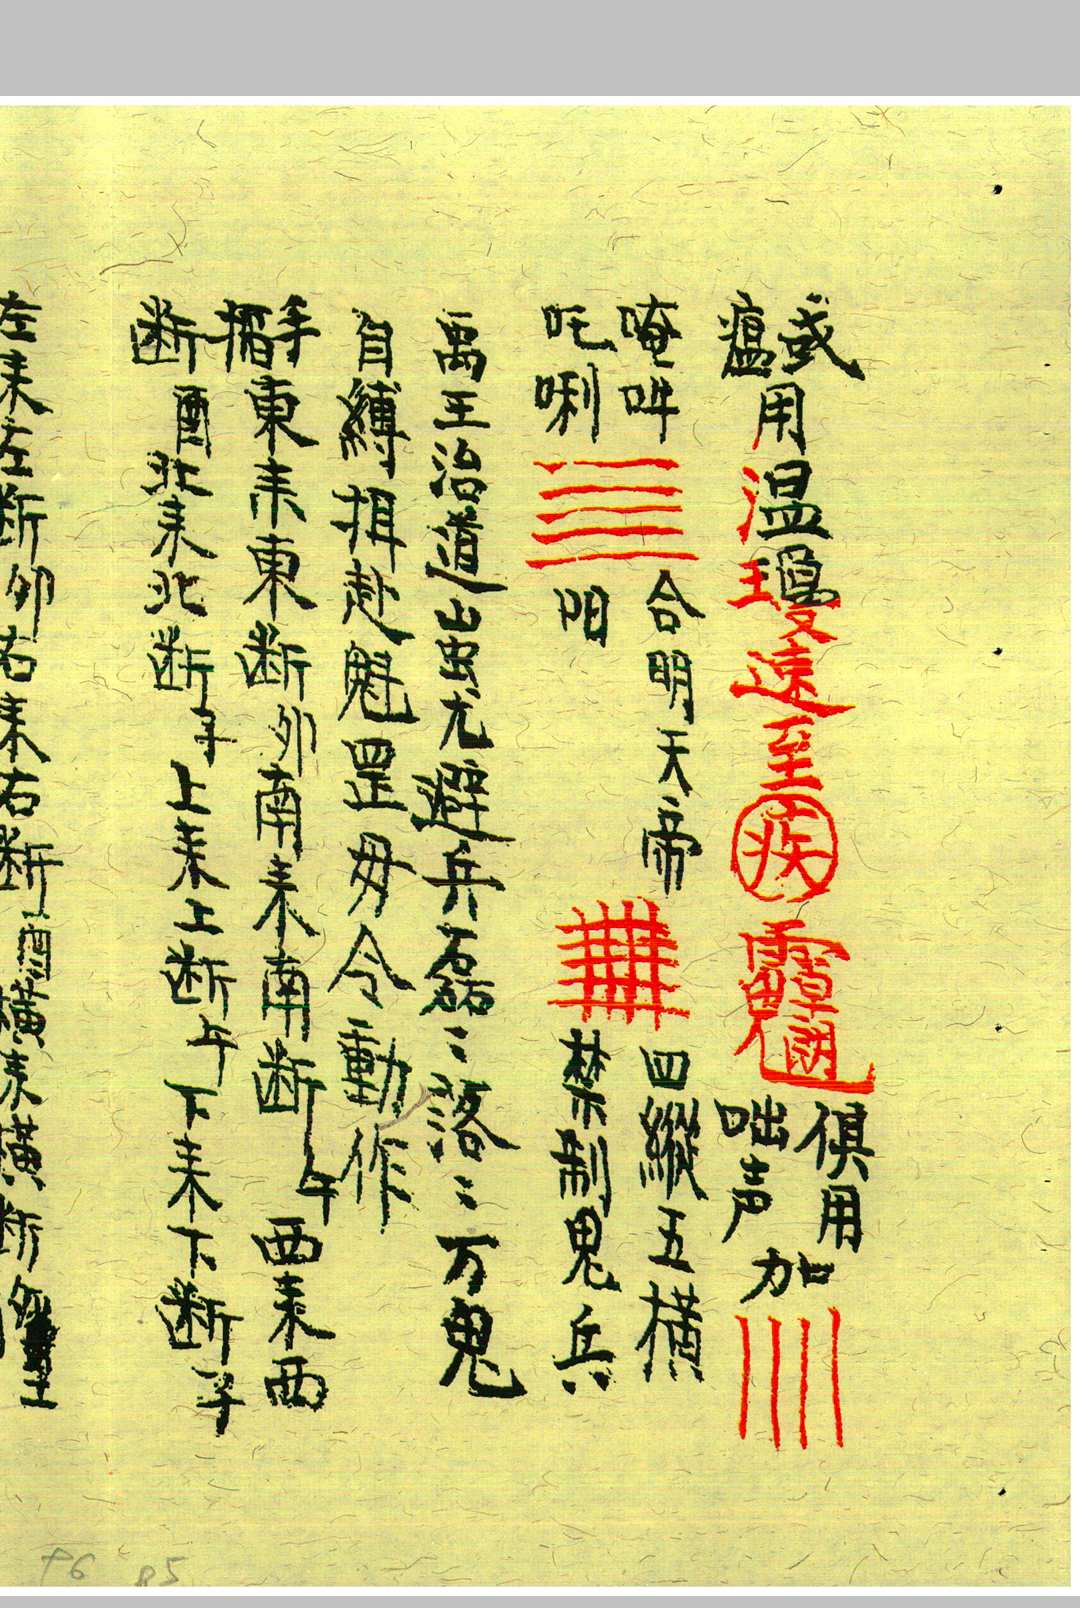 或用温
瘟遠至疾俱用
咄声加
唵吽合明天帝四縱五横
吒唎禁制鬼兵
禹王治道 蚩尤避兵 磊〻落〻 万鬼
自縛 担赴魁罡 毋令動作
手 東来東断卯 南来南断午 西来西
断酉 北来北断子 上来上断午 下来下断子
左来左断卯 右来右断酉 横来横断
P6 85